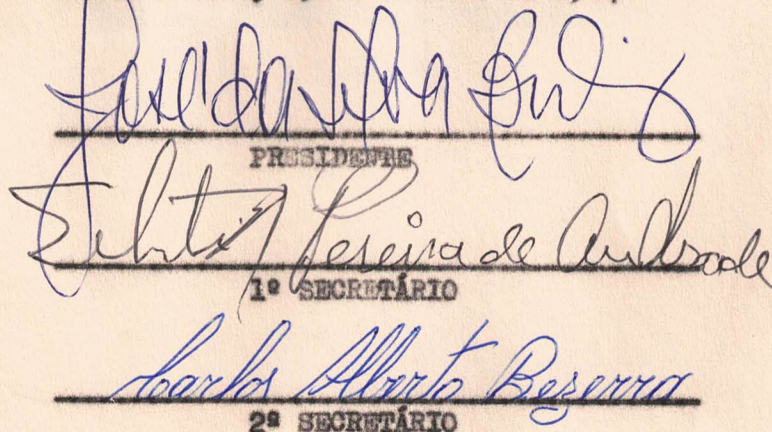 José da Silva
PRESIDENTE
Pereira de Andrade
1º SECRETÁRIO
Carlos Alberto Bezerra
2º SECRETÁRIO